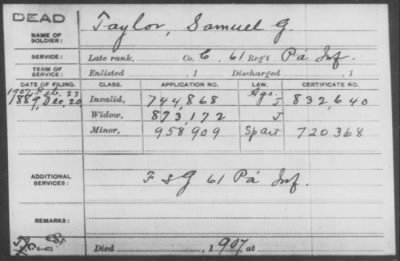 DEAD
NAME OF SOLDIER: Taylor, Samuel G.
SERVICE: Late rank, Co. C, 61 Reg't Pa Inf.
TERM OF SERVICE: Enlisted , 1 Discharged , 1
DATE OF FILING. CLASS. APPLICATION NO. LAW. CERTIFICATE NO.
1907, Feb. 23 Age.
1889, Dec, 20 Invalid, 744,868 J 832,640
Widow, 873,172 J
Minor, 958909 Sp act 720368
ADDITIONAL SERVICES: F & G 61 Pa Inf.
REMARKS:
Died , 1907, at